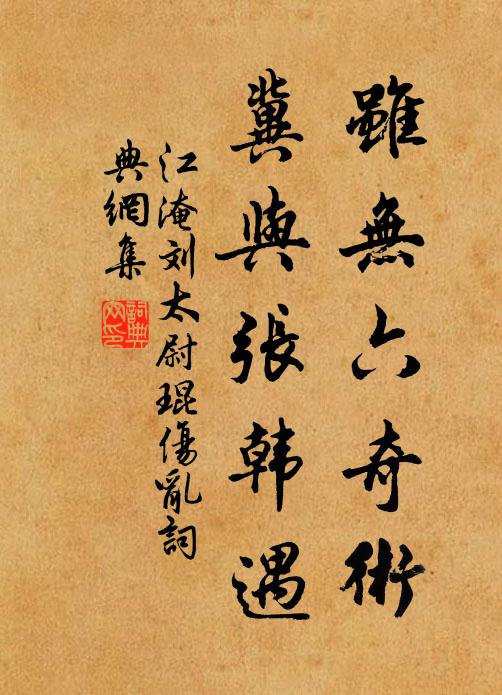 雖無六奇術
冀與張韩遇
江淹刘太尉琨傷亂詞
典網集
詞典网印